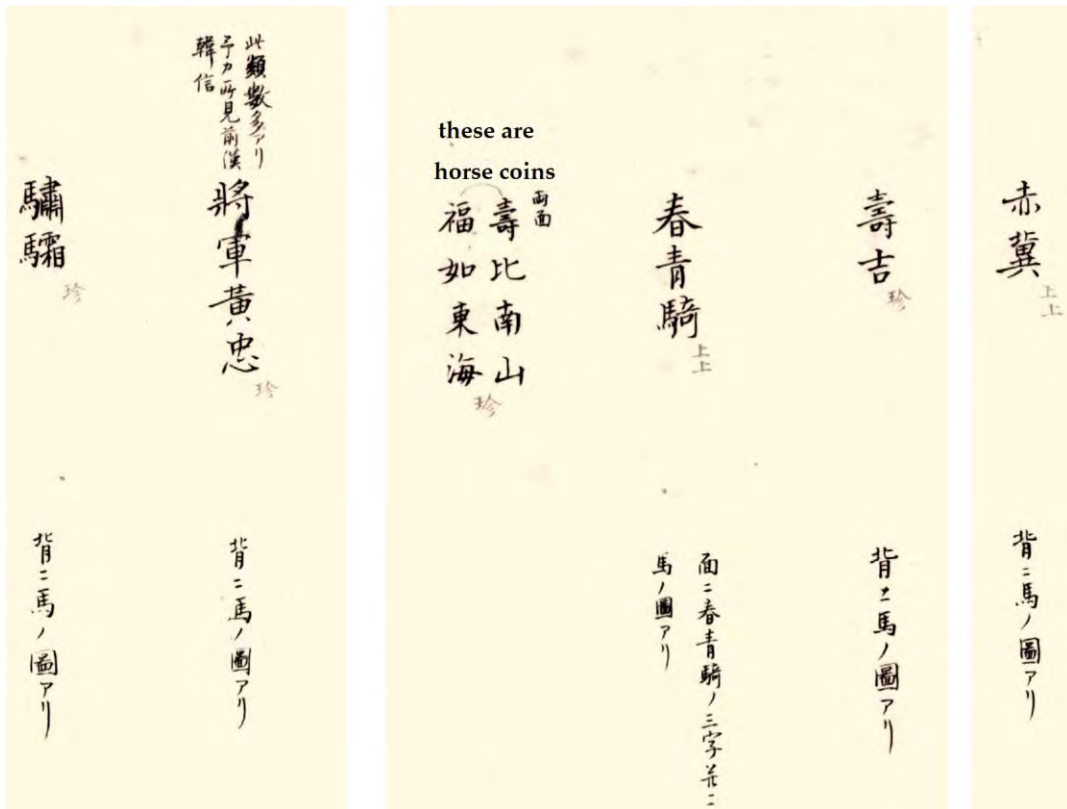 赤冀
上上
背ニ馬ノ圖アリ
壽吉
珍
背ニ馬ノ圖アリ
春青騎
上上
面ニ春青騎ノ三字並ニ
馬ノ圖アリ
these are
horse coins
両面
壽比南山
福如東海
珍
此類數多アリ
予カ所見前漢
韓信
將軍黃忠
珍
背ニ馬ノ圖アリ
驌驦
珍
背ニ馬ノ圖アリ